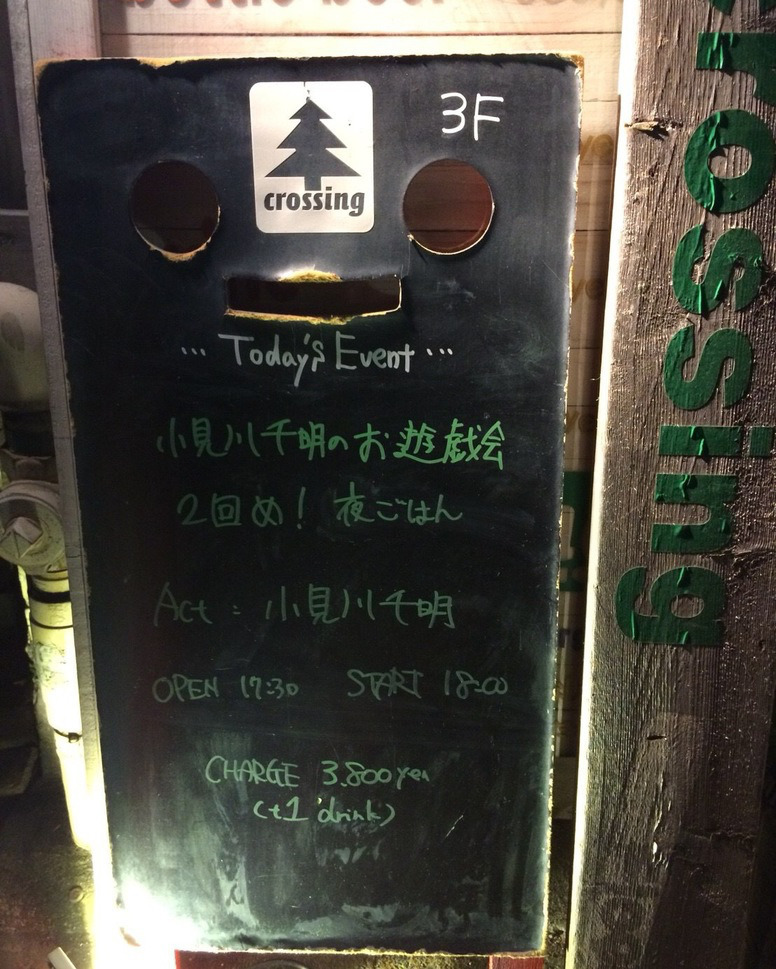 3F
crossing
... Today's Event ...
小見川千明のお遊戯会
2回め! 夜ごはん
Act : 小見川千明
OPEN 17:30 START 18:00
CHARGE 3.800yen
(+1 drink)
crossing